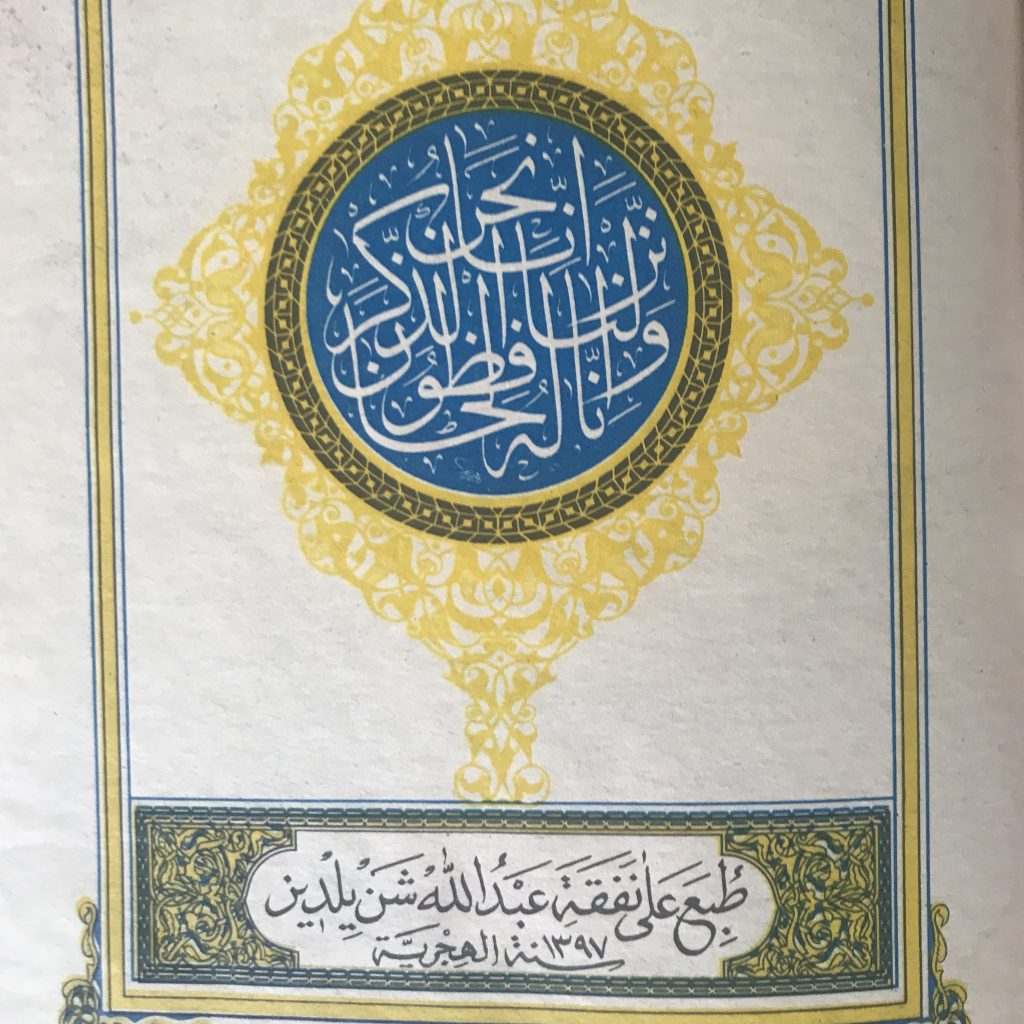 إنا نحن نزلنا الذكر وإنا له لحافظون
طُبِعَ عَلىٰ نَفَقَةِ عَبْدُ اللّٰه شَنْ يِلْدِيز
سنة ١٣٩٧ الهِجْرِيَّة